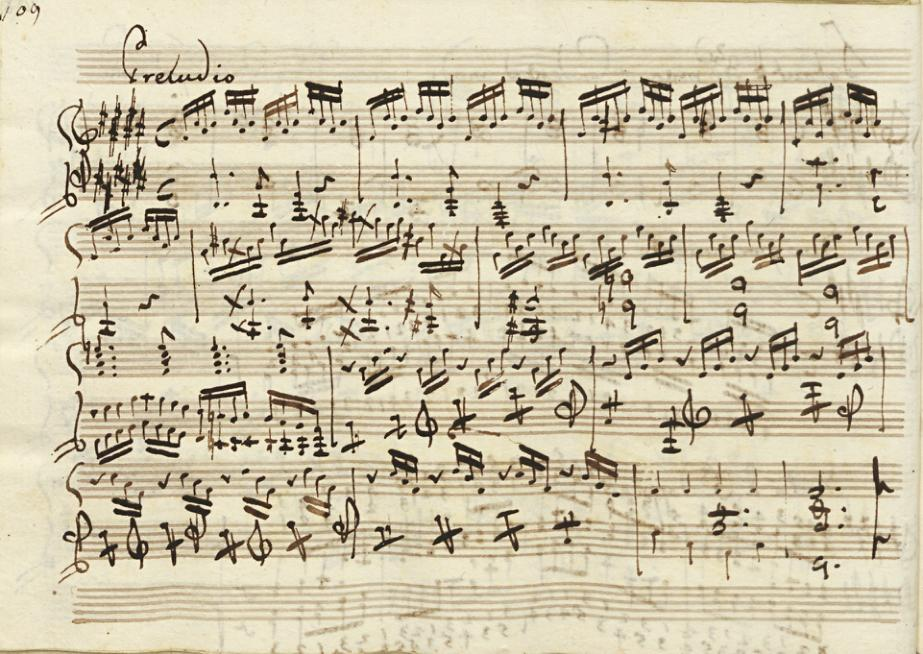 109
Preludio